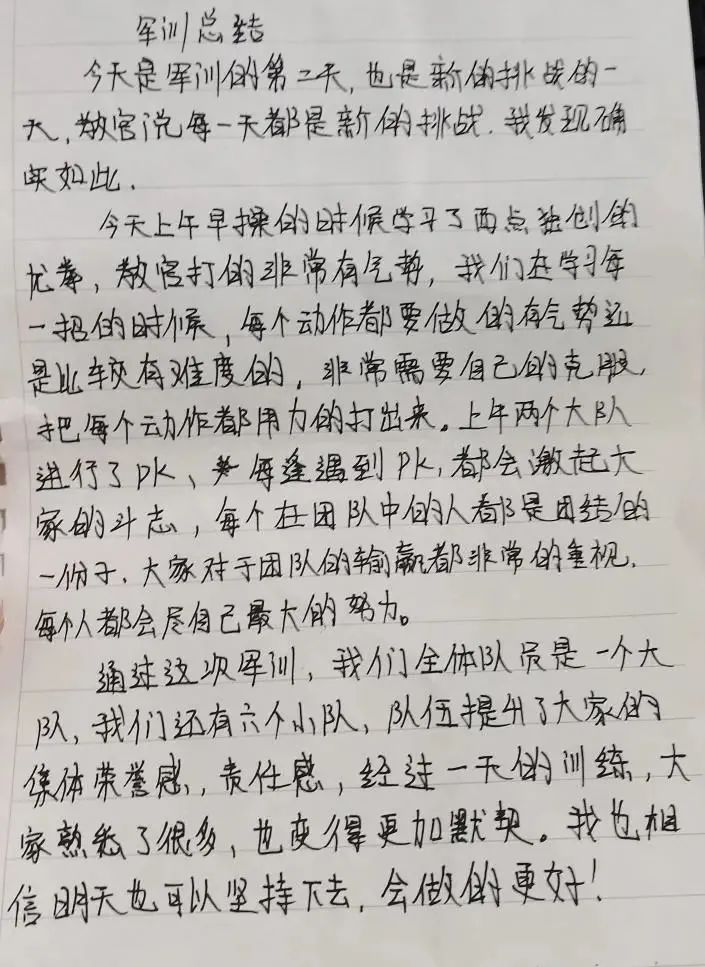 军训总结
今天是军训的第二天,也是新的挑战的一
天,教官说每一天都是新的挑战.我发现确
实如此.
今天上午早操的时候学习了西点独创的
优拳,教官打的非常有气势,我们在学习每
一招的时候,每个动作都要做的有气势还
是比较有难度的,非常需要自己的克服,
把每个动作都用力的打出来。上午两个大队
进行了PK、每逢遇到PK,都会激起大
家的斗志,每个在团队中的人都是团结的
一份子.大家对于团队的输赢都非常的重视,
每个人都会尽自己最大的努力。
通过这次军训,我们全体队员是一个大
队,我们还有六个小队,队伍提升了大家的
集体荣誉感,责任感,经过一天的训练,大
家熟悉了很多,也变得更加默契。我也相
信明天也可以坚持下去,会做的更好!